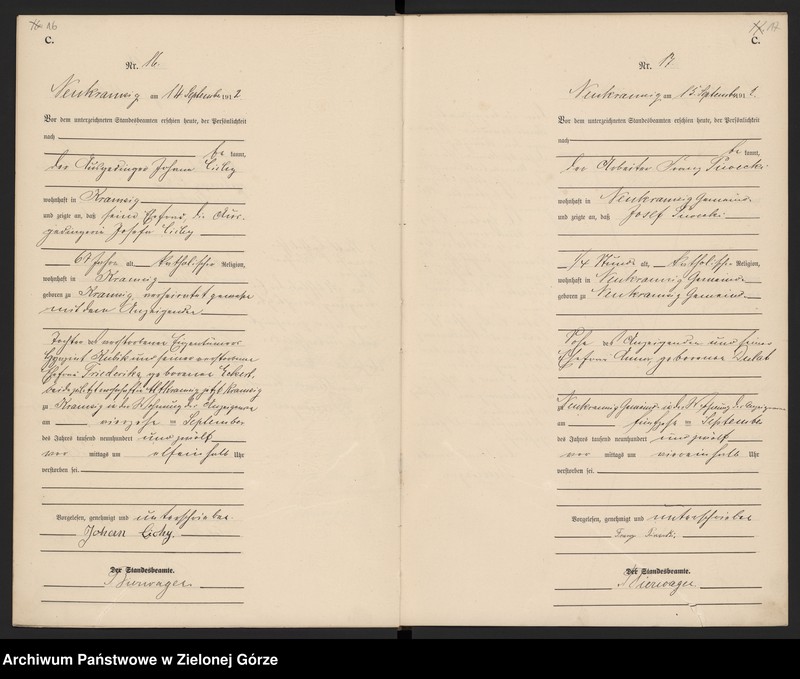 16
C.
Nr. 16.
Neukramzig am 14 September 1912.
Vor dem unterzeichneten Standesbeamten erschien heute, der Persönlichkeit
nach
be kannt,
der Johann Cichy
wohnhaft in Kramzig
und zeigte an, daß seine Ehefrau, die Aus-
gedingerin Josefa Cichy
67 Jahre alt, katholischer Religion,
wohnhaft in Kramzig
geboren zu Kramzig verheiratet gewesen
mit dem Anzeigenden
Tochter des verstorbenen Eigentümers
Kubik und seiner verstorbenen
Ehefrau Friederike geborenen
beide zuletzt wohnhaft in Altkramzig jetzt Kramzig
zu Kramzig in der Wohnung des Anzeigenden
am vierzehnten September
des Jahres tausend neunhundert und zwölf
vor mittags um elfeinhalb Uhr
verstorben sei.
Vorgelesen, genehmigt und unterschrieben
Johan Cichy.
Der Standesbeamte.
Bierwagen
17
C.
Nr. 17.
Neukramzig am 15 September 1912.
Vor dem unterzeichneten Standesbeamten erschien heute, der Persönlichkeit
nach
be kannt,
der Arbeiter Franz
wohnhaft in Neukramzig Gemeinde
und zeigte an, daß Josef
1/4 Stunde alt, katholischer Religion,
wohnhaft in Neukramzig Gemeinde
geboren zu Neukramzig Gemeinde
Sohn des Anzeigenden und seiner
Ehefrau Anna geborenen
zu Neukramzig Gemeinde in der Wohnung des Anzeigenden
am fünfzehnten September
des Jahres tausend neunhundert und zwölf
vor mittags um viereinhalb Uhr
verstorben sei.
Vorgelesen, genehmigt und unterschrieben
Franz
Der Standesbeamte.
Bierwagen
Archiwum Państwowe w Zielonej Górze